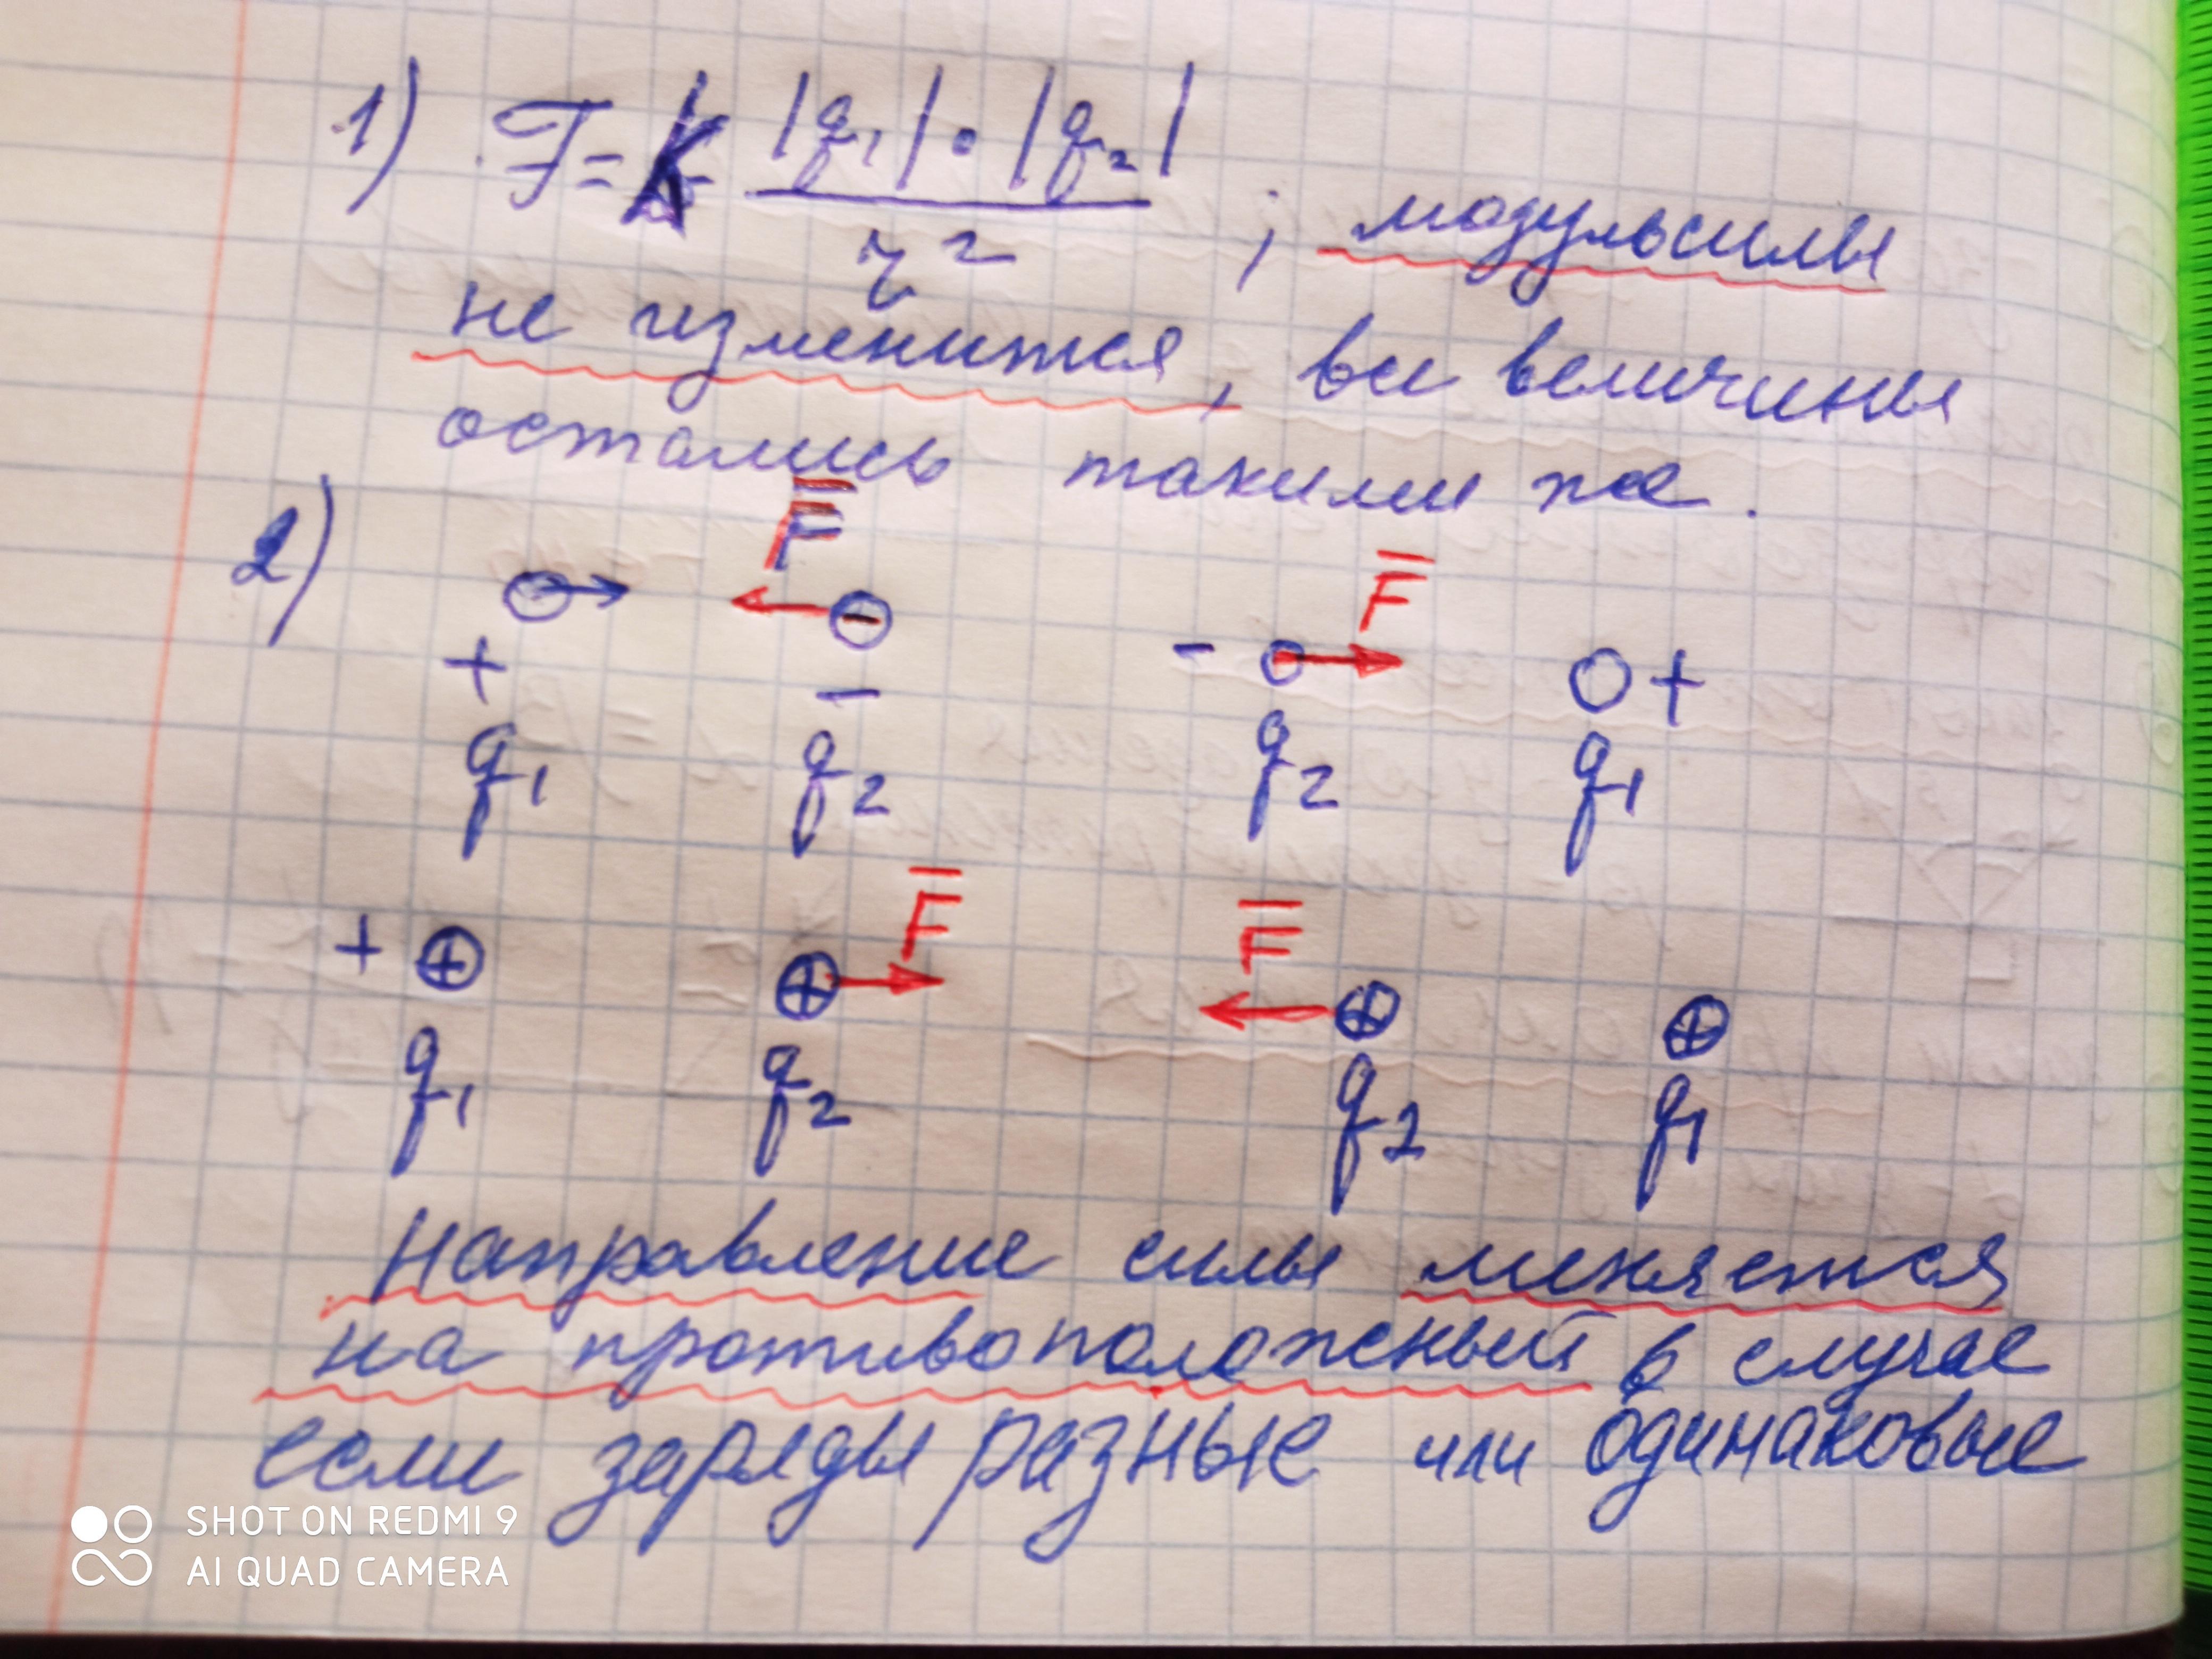 1) F = k |q₁| · |q₂| / r² ; модуль силы
не изменится, все величины
остались такими же.
2) F̅ F̅
+ − − +
q₁ q₂ q₂ q₁
F̅ F̅
+ ⊕ ⊕ ⊕ ⊕
q₁ q₂ q₂ q₁
Направление силы меняется
на противоположный в случае
если заряды разные или одинаковые
SHOT ON REDMI 9
AI QUAD CAMERA